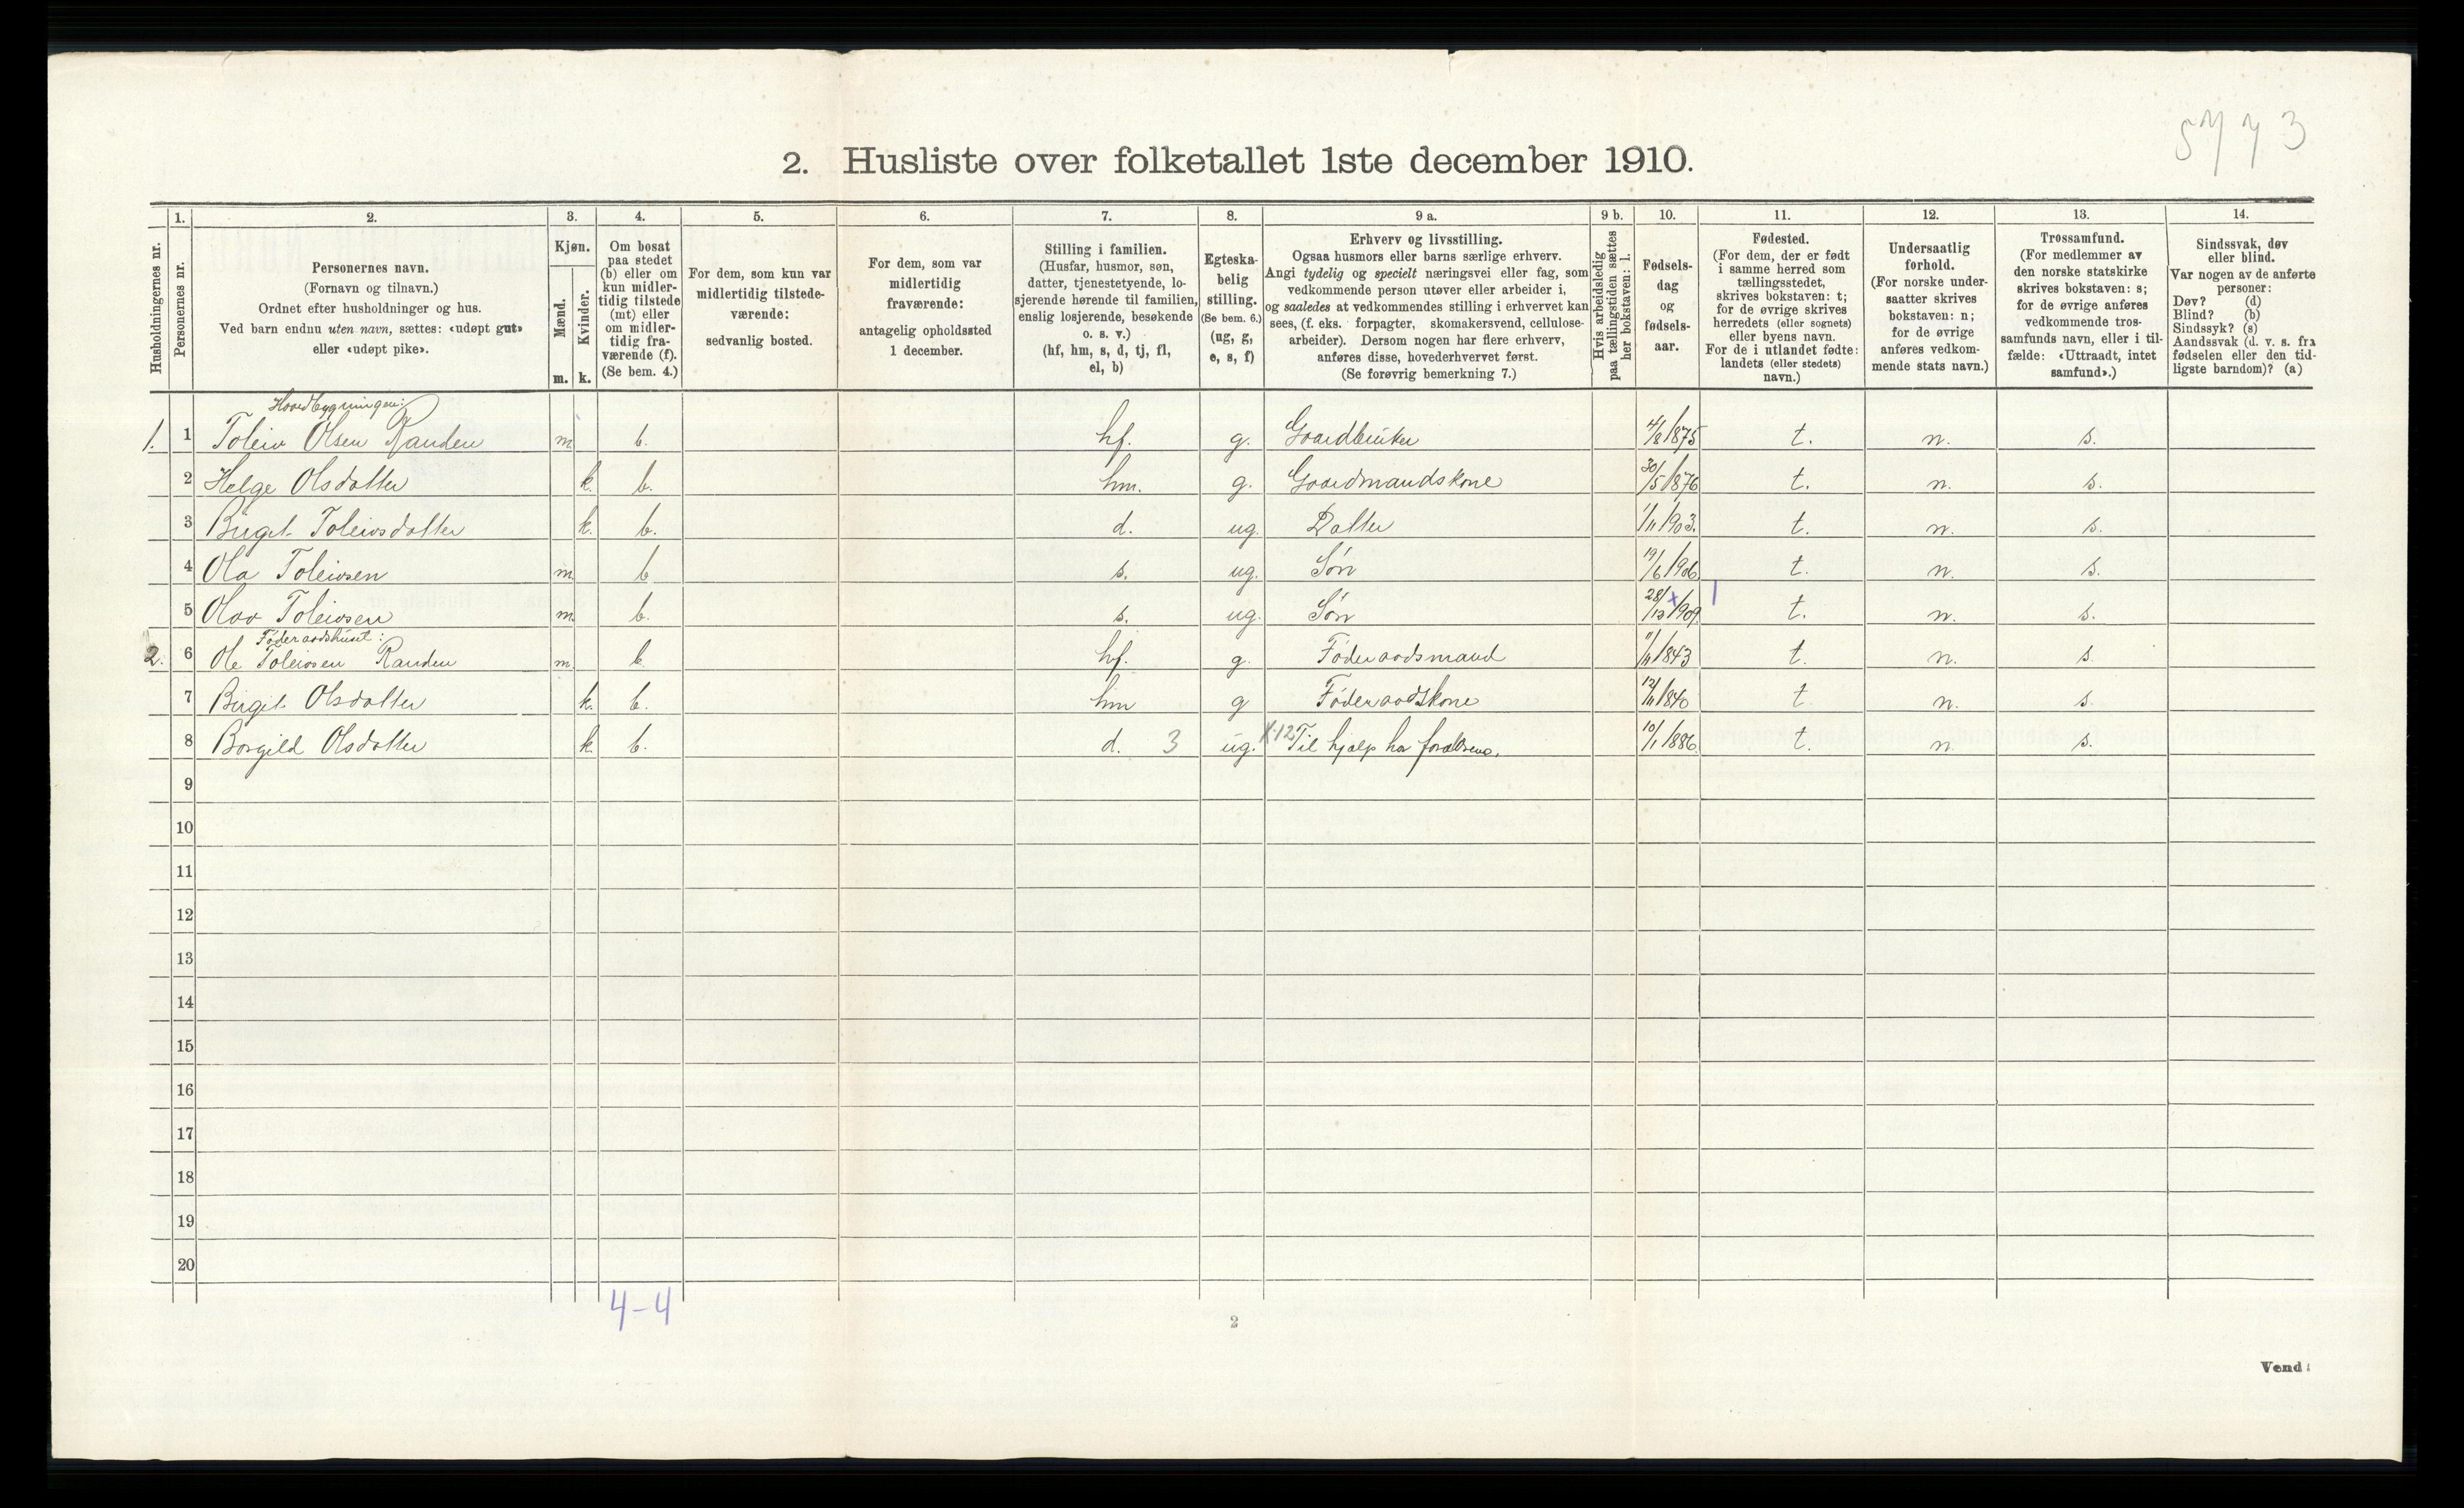 5773
2. Husliste over folketallet 1ste december 1910.
Husholdningernes nr.
1.
Personernes nr.
2.
Personernes navn.
(Fornavn og tilnavn.)
Ordnet efter husholdninger og hus.
Ved barn endnu uten navn, sættes: «udøpt gut»
eller «udøpt pike».
3.
Kjøn.
Mænd.
m.
Kvinder.
k.
4.
Om bosat
paa stedet
(b) eller om
kun midler-
tidig tilstede
(mt) eller
om midler-
tidig fra-
værende (f).
(Se bem. 4.)
5.
For dem, som kun var
midlertidig tilstede-
værende:
sedvanlig bosted.
6.
For dem, som var
midlertidig
fraværende:
antagelig opholdssted
1 december.
7.
Stilling i familien.
(Husfar, husmor, søn,
datter, tjenestetyende, lo-
sjerende hørende til familien,
enslig losjerende, besøkende
o. s. v.)
(hf, hm, s, d, tj, fl,
el, b)
8.
Egteska-
belig
stilling.
(Se bem. 6.)
(ug, g,
e, s, f)
9 a.
Erhverv og livsstilling.
Ogsaa husmors eller barns særlige erhverv.
Angi tydelig og specielt næringsvei eller fag, som
vedkommende person utøver eller arbeider i,
og saaledes at vedkommendes stilling i erhvervet kan
sees, (f. eks. forpagter, skomakersvend, cellulose-
arbeider). Dersom nogen har flere erhverv,
anføres disse, hovederhvervet først.
(Se forøvrig bemerkning 7.)
9 b.
Hvis arbeidsledig
paa tællingstiden sættes
her bokstaven: l.
10.
Fødsels-
dag
og
fødsels-
aar.
11.
Fødested.
(For dem, der er født
i samme herred som
tællingsstedet,
skrives bokstaven: t;
for de øvrige skrives
herredets (eller sognets)
eller byens navn.
For de i utlandet fødte:
landets (eller stedets)
navn.)
12.
Undersaatlig
forhold.
(For norske under-
saatter skrives
bokstaven: n;
for de øvrige
anføres vedkom-
mende stats navn.)
13.
Trossamfund.
(For medlemmer av
den norske statskirke
skrives bokstaven: s;
for de øvrige anføres
vedkommende tros-
samfunds navn, eller i til-
fælde: «Uttraadt, intet
samfund».)
14.
Sindssvak, døv
eller blind.
Var nogen av de anførte
personer:
Døv? (d)
Blind? (b)
Sindssyk? (s)
Aandssvak (d. v. s. fra
fødselen eller den tid-
ligste barndom)? (a)
Hovedbygningen:
1. 1 Toleiv Olsen Randen m b. hf. g. Gaardbruker 4/8 1875 t. n. s.
2 Helge Olsdatter k. b. hm. g. Gaardmandskone 30/5 1876 t. n. s.
3 Birgit Toleivsdatter k. b. d. ug. Datter 1/11 1903. t. n. s.
4 Ola Toleivsen m b s. ug. Søn 19/6 1906. t. n. s.
5 Olav Toleivsen m b. s. ug. Søn 28/12 1909. t. n. s.
Føderaadshuset:
2. 6 Ole Toleivsen Randen m b. hf. g. Føderaadsmand 11/11 1843 t. n. s.
7 Birgit Olsdatter k. b. hm g Føderaadskone 12/11 1840 t n. s.
8 Borgild Olsdatter k b. d. 3 ug. Til hjælp hos forældrene. 10/1 1886. t. n. s.
9
10
11
12
13
14
15
16
17
18
19
20
4-4
2
Vend!